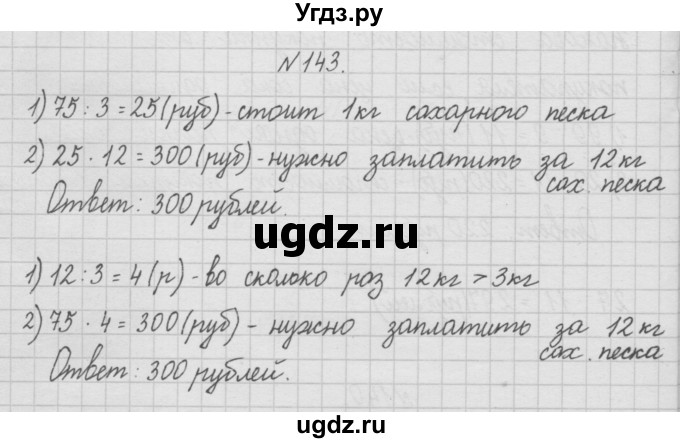 Угдз.ру
N 143.
1) 75 : 3 = 25 (руб) - стоит 1кг сахарного песка
2) 25 · 12 = 300 (руб) - нужно заплатить за 12 кг
сах. песка
Ответ: 300 рублей.
ugdz.ru
1) 12 : 3 = 4 (р) - во сколько раз 12кг > 3кг
2) 75 · 4 = 300 (руб) - нужно заплатить за 12 кг
сах. песка
Ответ: 300 рублей.
ugdz.ru